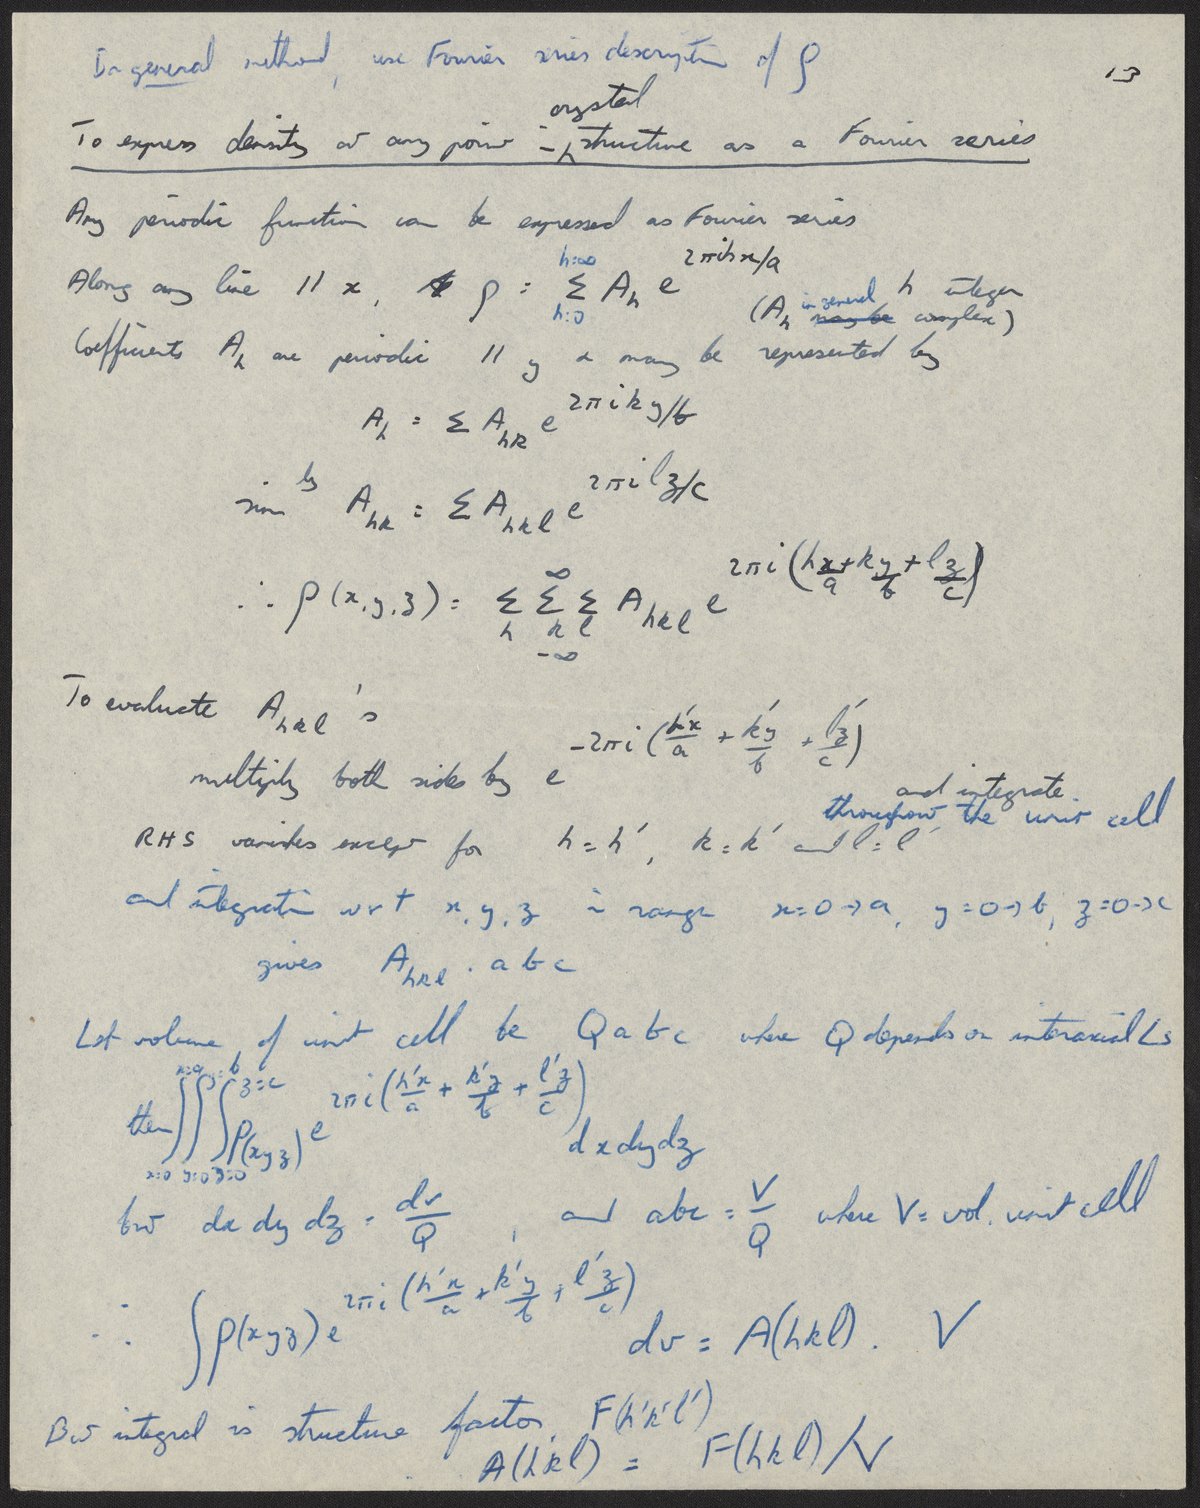 In general method, use Fourier series description of ρ
13
crystal
To express density at any point in structure as a Fourier series
Any periodic function can be expressed as Fourier series
Along any line // x, ρ = Σ_{h=0}^{h=∞} A_h e^{2πihx/a} h integer
(A_h in general may be complex)
Coefficients A_h are periodic // y & may be represented by
A_h = Σ A_hk e^{2πiky/b}
sim^ly A_hk = Σ A_hkl e^{2πilz/c}
∴ ρ(x,y,z) = Σ_h Σ_k Σ_l _{-∞}^{∞} A_hkl e^{2πi(hx/a + ky/b + lz/c)}
To evaluate A_hkl's
multiply both sides by e^{-2πi(h'x/a + k'y/b + l'z/c)}
and integrate
throughout the unit cell
RHS vanishes except for h = h', k = k' and l = l'
and integration wrt x, y, z in range x=0→a, y=0→b, z=0→c
gives A_hkl . abc
Let volume of unit cell be Qabc where Q depends on interaxial ∠s
then ∫_{x=0}^{x=a} ∫_{y=0}^{y=b} ∫_{z=0}^{z=c} ρ(xyz) e^{2πi(h'x/a + k'y/b + l'z/c)} dxdydz
but dx dy dz = dv/Q , and abc = V/Q where V = vol. unit cell
∴ ∫ρ(xyz) e^{2πi(h'x/a + k'y/b + l'z/c)} dv = A(hkl) . V
But integral is structure factor F(h'k'l')
A(hkl) = F(hkl)/V